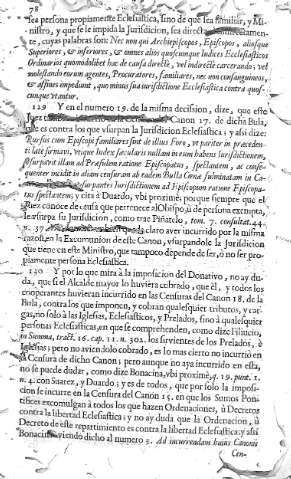 78
sea persona propiamente Eclesiastica, sino de que sea familiar, y Mi-
nistro, y que se le impida la Jurisdicion, sea directa,
te, cuyas palabras son: Nec non qui Archiepiscopos, Episcopos, aliosque
Superiores, & inferiores, & omnes alios quoscumque Iudices Ecclesiasticos
Ordinarios quomodolibet hac de causa directè, vel indirectè carcerando; vel
molestando eorum agentes, Procuratores, familiares, nec non consanguineos,
& affines impediunt, quo minus sua iurisdictione Ecclesiastica contra quos-
cunque utantur.
129 Y en el numero 19. de la misma decision, dize, que este
Canon 17. de dicha Bula,
que es contra los que vsurpan la Iurisdicion Eclesiastica: y assi dize:
Rursus cum Episcopi familiares sint de illius Foro, vt pariter in præceden-
ti late firmavi, vtique Iudex sæcularis nullam in eum habens iurisdictionem,
vsurpavit illam ad Præsulem ratione Episcopatus, spectantem, & conse-
quenter incidit in aliam censuram ab eadem Bulla Cœnæ fulminatam in Ca-
partes Iurisdictionem ad Episcopum ratione Episcopa-
tus spectantem; y cita à Duardo, vbi proximè; porque siempre que el
Juez conoce de causa que pertenece al Obispo, ù de persona exempta,
le vsurpa su Jurisdicion, como trae Piñatelo, tom. 7. consultat. 44.
n. 37 claro aver incurrido por la misma
razon, en la Excomunion de este Canon, vsurpandole la Jurisdicion
que tiene en este Ministro, que tampoco depende de ser, ò no ser pro-
piamente persona Eclesiastica.
130 Y por lo que mira à la imposicion del Donativo, no ay du-
da, que si el Alcalde mayor lo huviera cobrado, que èl, y todos los
cooperantes huvieran incurrido en las Censuras del Canon 18. de la
Bula, contra los que imponen, y cobran qualesquier tributos, y car-
gas, no solo à las Iglesias, Eclesiasticos, y Prelados, sino à qualesquier
personas Eclesiasticas, en que se comprehenden, como dize Filiucio,
in Summa, tract. 16. cap. 11. n. 302. los sirvientes de los Prelados, è
Iglesias; pero no avien lo cobrado, es lo mas cierto no incurrió en
la Censura de dicho Canon; pero aunque no aya incurrido en esta,
no se puede dudar, como dize Bonacina, vbi proximè, q. 19. punt. 1.
n. 4. con Suarez, y Duardo; y es de todos, que por solo la imposi-
cion se incurre en la Censura del Canon 15. en que los Sumos Pon-
tifices excomulgan à todos los que hazen Ordenaciones, ù Decretos
contra la libertad Eclesiastica; y no ay duda que la Ordenacion, ù
Decreto de este repartimiento es contra la libertad Eclesiastica: y assi
Bonacina, viendo dicho al numero 3. Ad incurrendam huius Canonis
Cen-